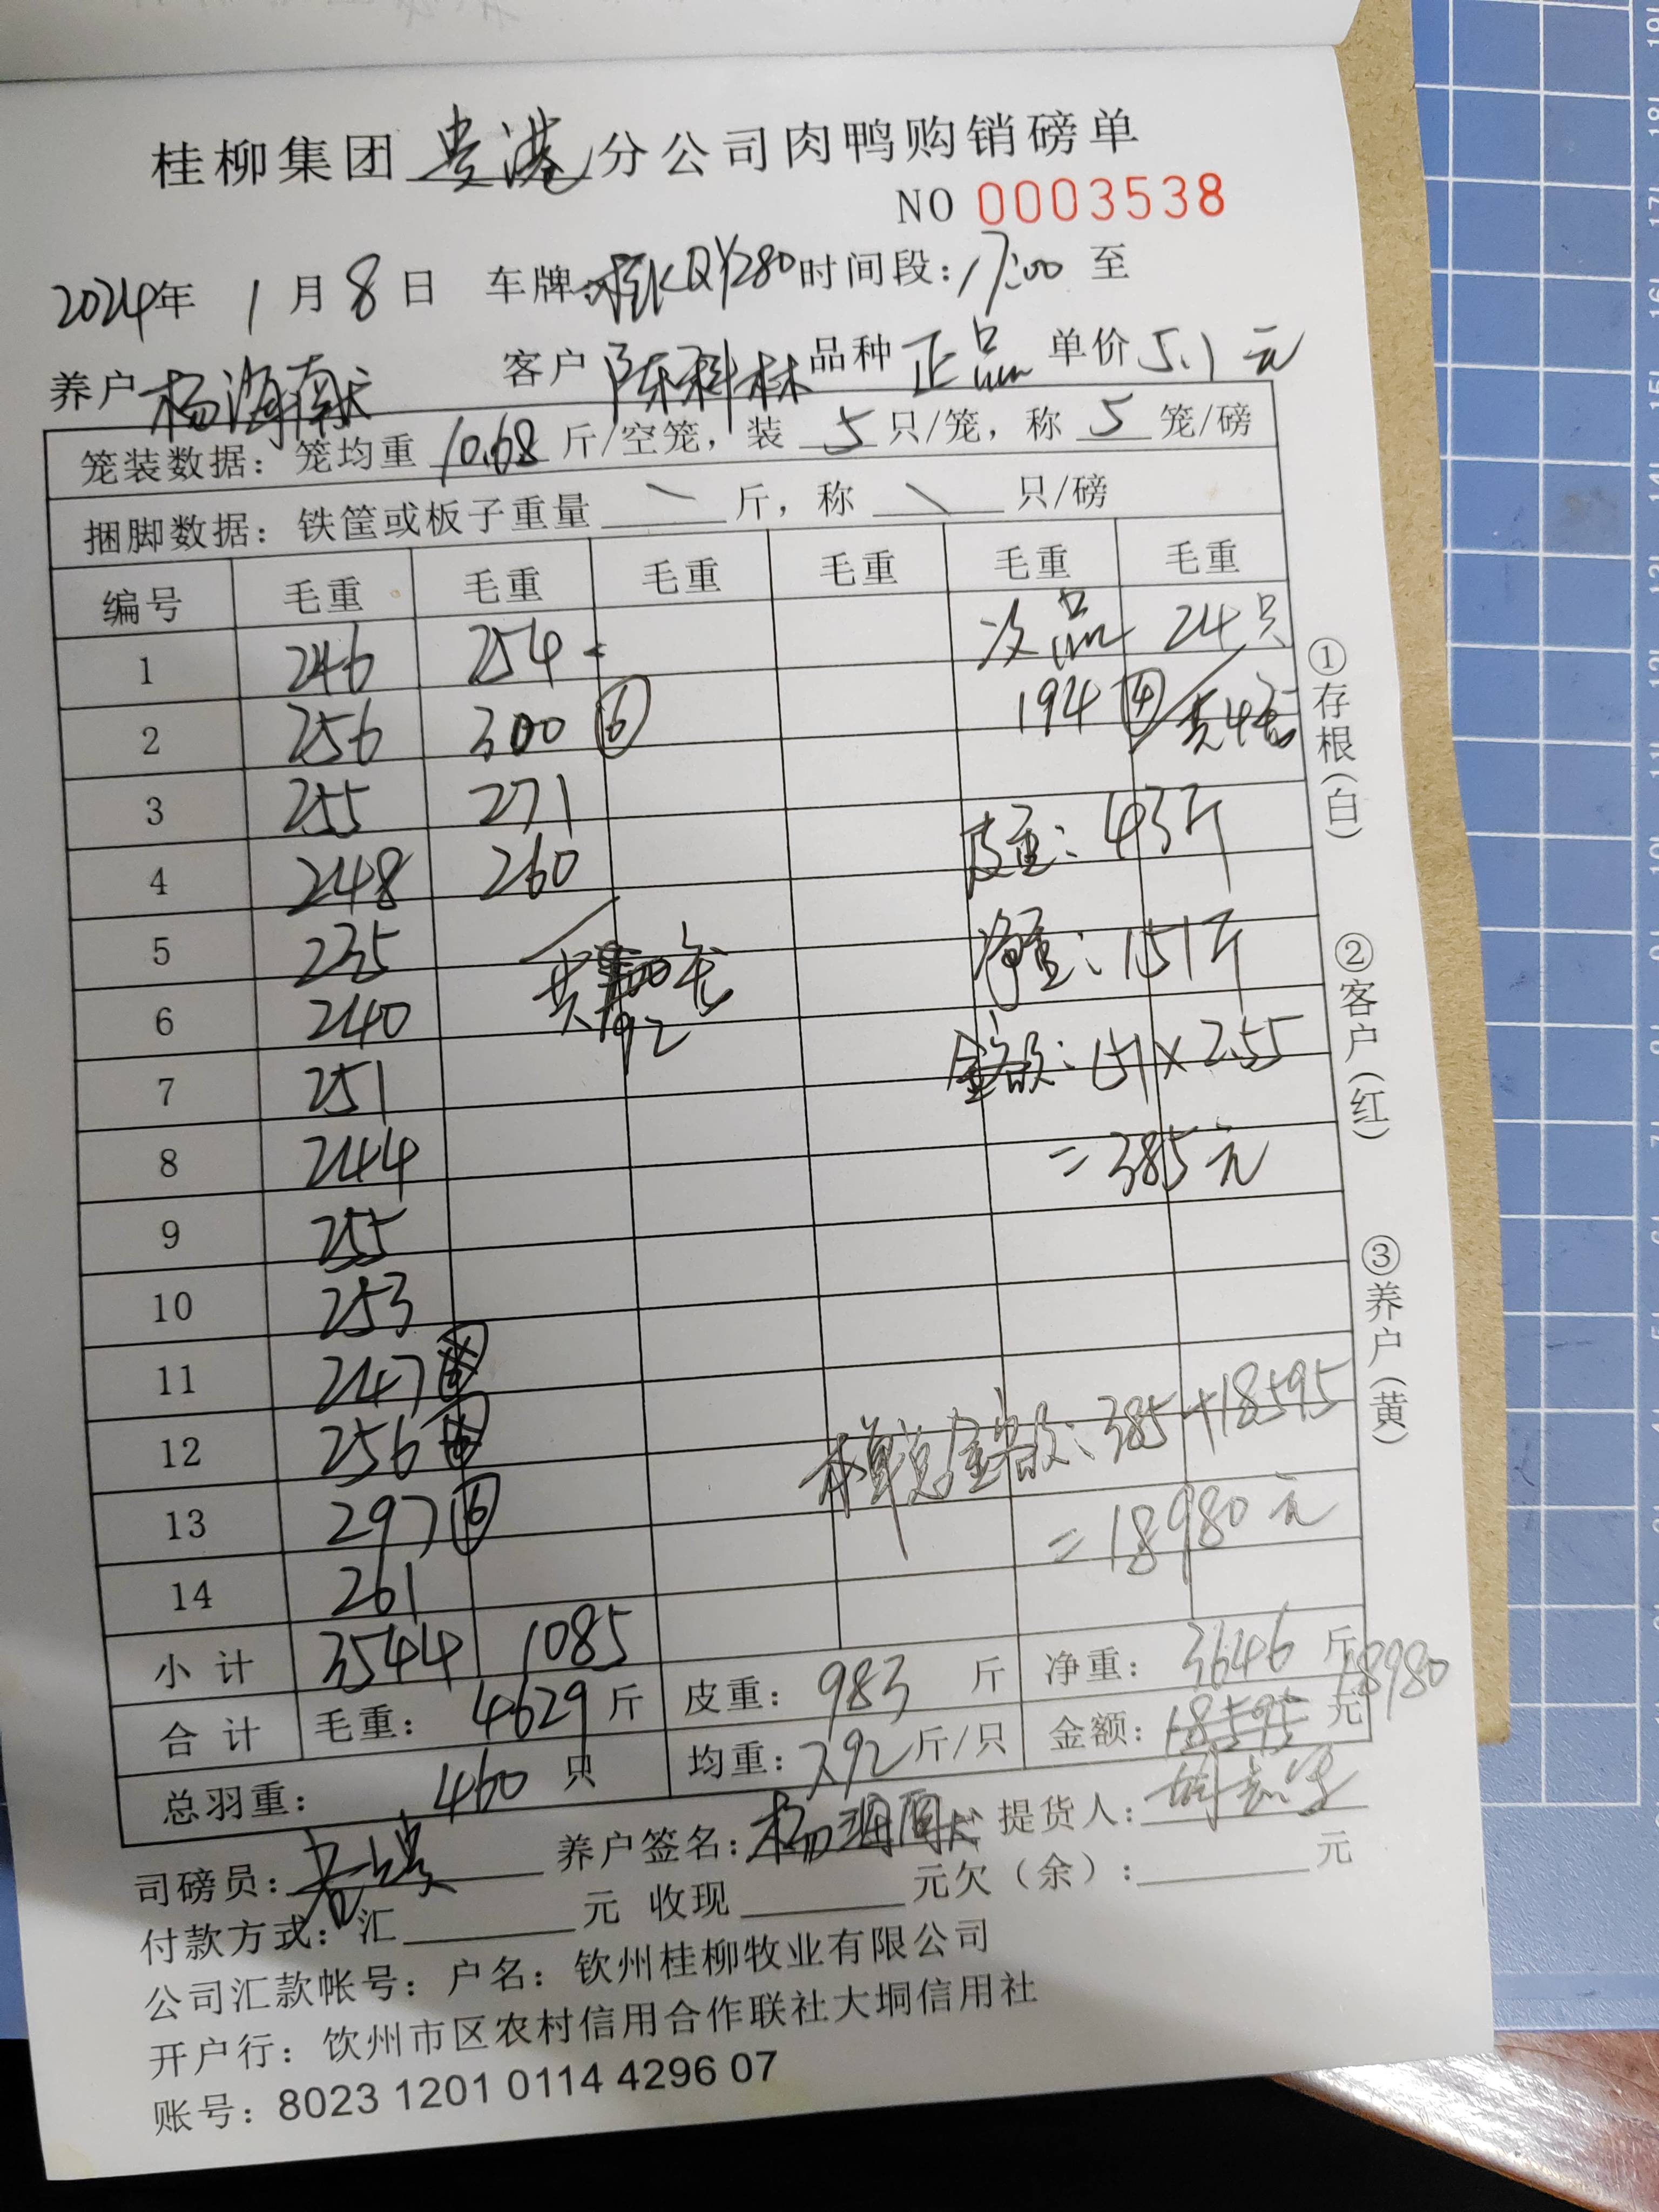 桂柳集团贵港分公司肉鸭购销磅单
NO 0003538
2024年 1月8日 车牌:桂KQY280时间段:17:00 至
养户 杨海 客户 陈科林 品种 正品 单价 5.1 元
笼装数据: 笼均重 10.68 斤/空笼, 装 5 只/笼, 称 5 笼/磅
捆脚数据: 铁筐或板子重量 \ 斤, 称 \ 只/磅
编号 毛重 毛重 毛重 毛重 毛重 毛重
1 246 254 次品 24只
2 256 300 ⑥ 194 ④ 共4笼
3 255 271
4 248 260 皮重: 43斤
5 235 净重: 151斤
6 240 共92
7 251 金额: 151×2.55
8 244 =385元
9 255
10 253
11 247
12 256 本单总金额: 385+18595
13 297 ⑥ =18980元
14 261
小计 3544 1085
合计 毛重: 4629 斤 皮重: 983 斤 净重: 3646 斤
总羽重: 460 只 均重: 7.92 斤/只 金额: 18595 元 18980
司磅员: 养户签名: 杨海 提货人:
付款方式: 汇 元 收现 元欠(余): 元
公司汇款帐号: 户名: 钦州桂柳牧业有限公司
开户行: 钦州市区农村信用合作联社大垌信用社
账号: 8023 1201 0114 4296 07
①存根(白)
②客户(红)
③养户(黄)